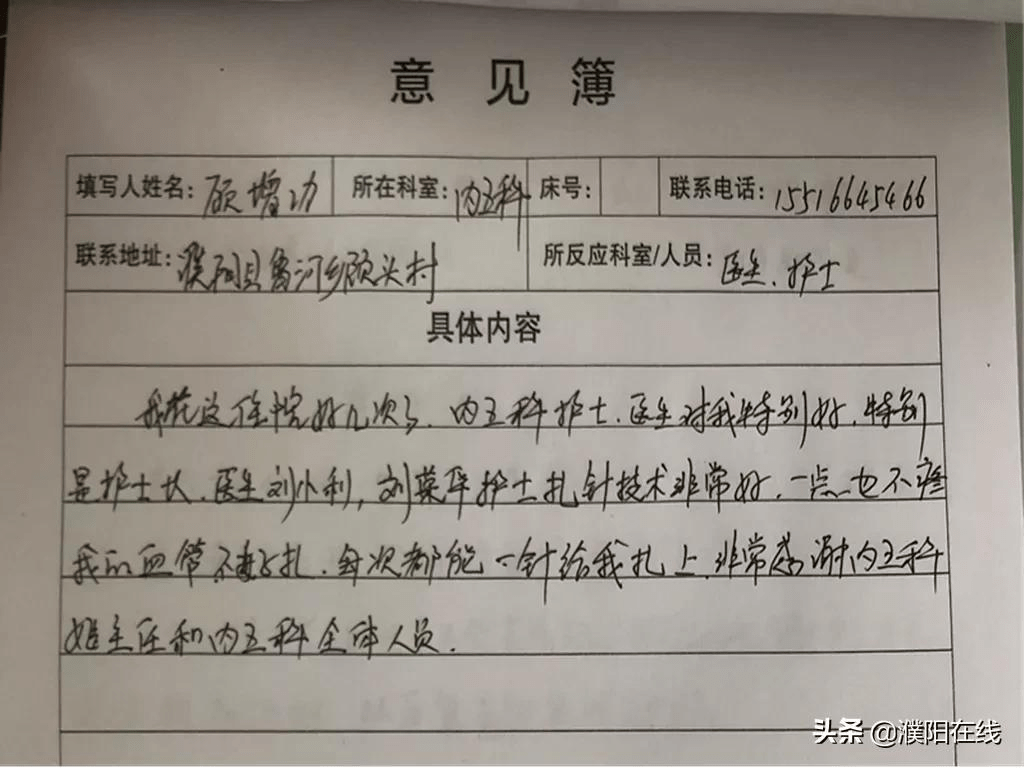 意见簿
填写人姓名: 顾增功 所在科室: 内五科 床号: 联系电话: 15516645466
联系地址: 濮阳县鲁河乡顾头村 所反应科室/人员: 医生、护士
具体内容
我在这住院好几次了、内五科护士、医生对我特别好、特别
是护士长、医生刘小利,刘英平护士扎针技术非常好、一点也不疼
我的血管不好扎、每次都能一针给我扎上、非常感谢内五科
姬主任和内五科全体人员.
头条 @濮阳在线